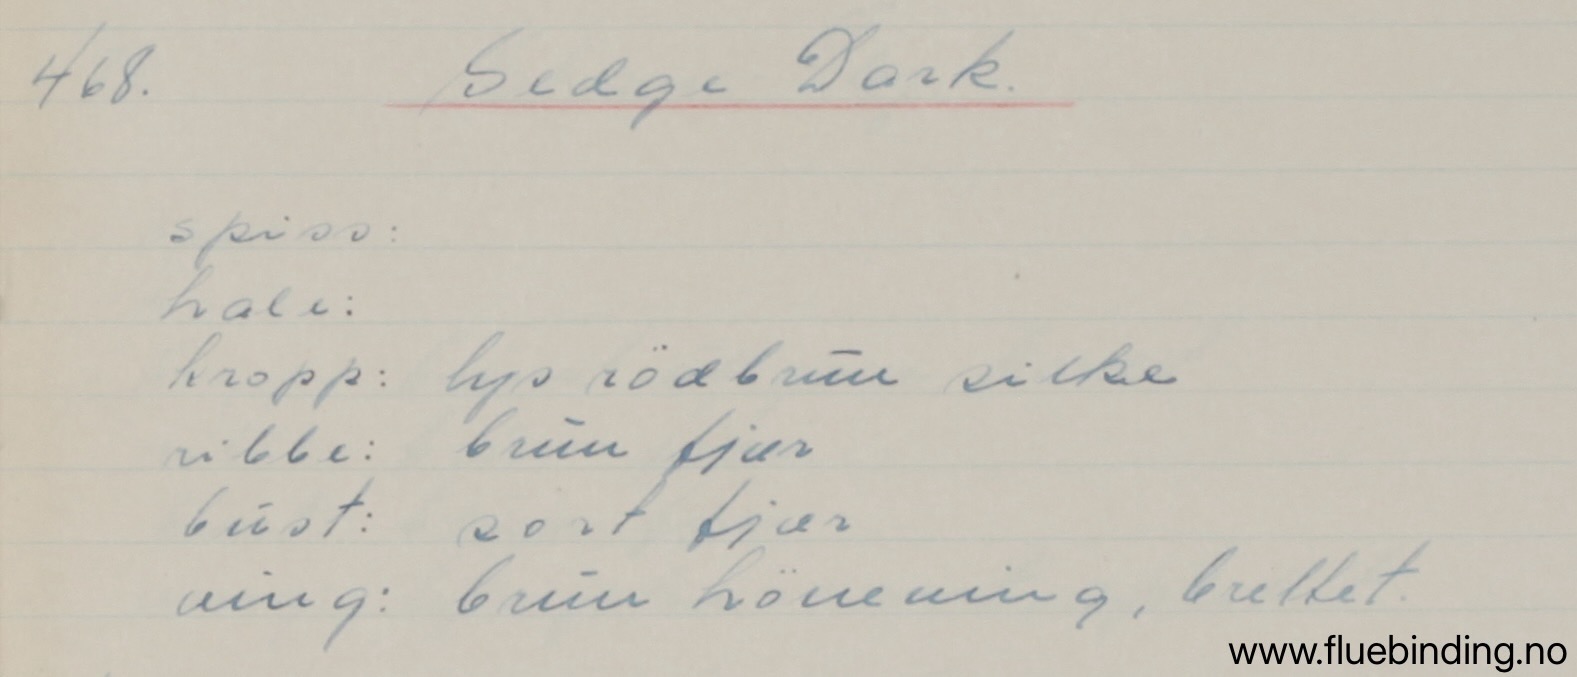 468. Sedge Dark.
spiss:
hale:
kropp: lys rödbrun silke
ribbe: brun fjær
bust: sort fjær
ving: brun höneving, brettet.
www.fluebinding.no